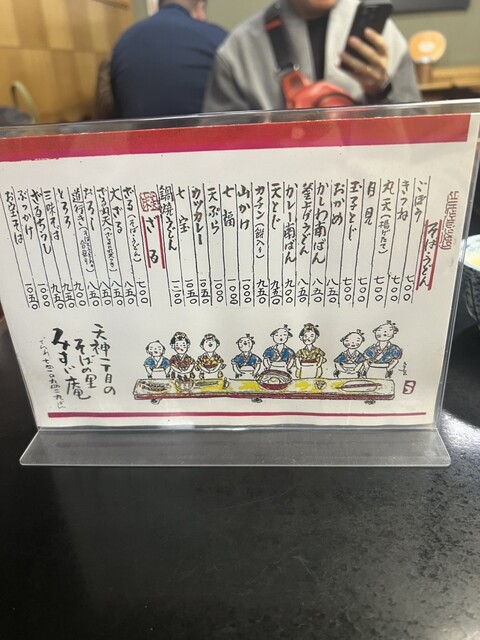 そば・うどん
ごぼう 七〇〇
きつね 七〇〇
丸天(揚げたて) 七〇〇
月見 七〇〇
玉子とじ
おかめ 八五〇
かしわ南ばん 八五〇
釜あげうどん 八五〇
カレー南ばん 九五〇
天とじ
カチン(餅入り) 九五〇
山かけ 一〇〇〇
七福 一〇〇〇
天ぷら 一〇五〇
カツカレー 一〇五〇
七宝
鍋焼うどん
ざる
ざる(そば・うどん) 七〇〇
大ざる 八五〇
おろし 八五〇
とろろ 九五〇
三味そば 九五〇
ぶっかけ 一〇五〇
お宝そば 一〇五〇
天神一丁目の
そばの里
みすゞ庵